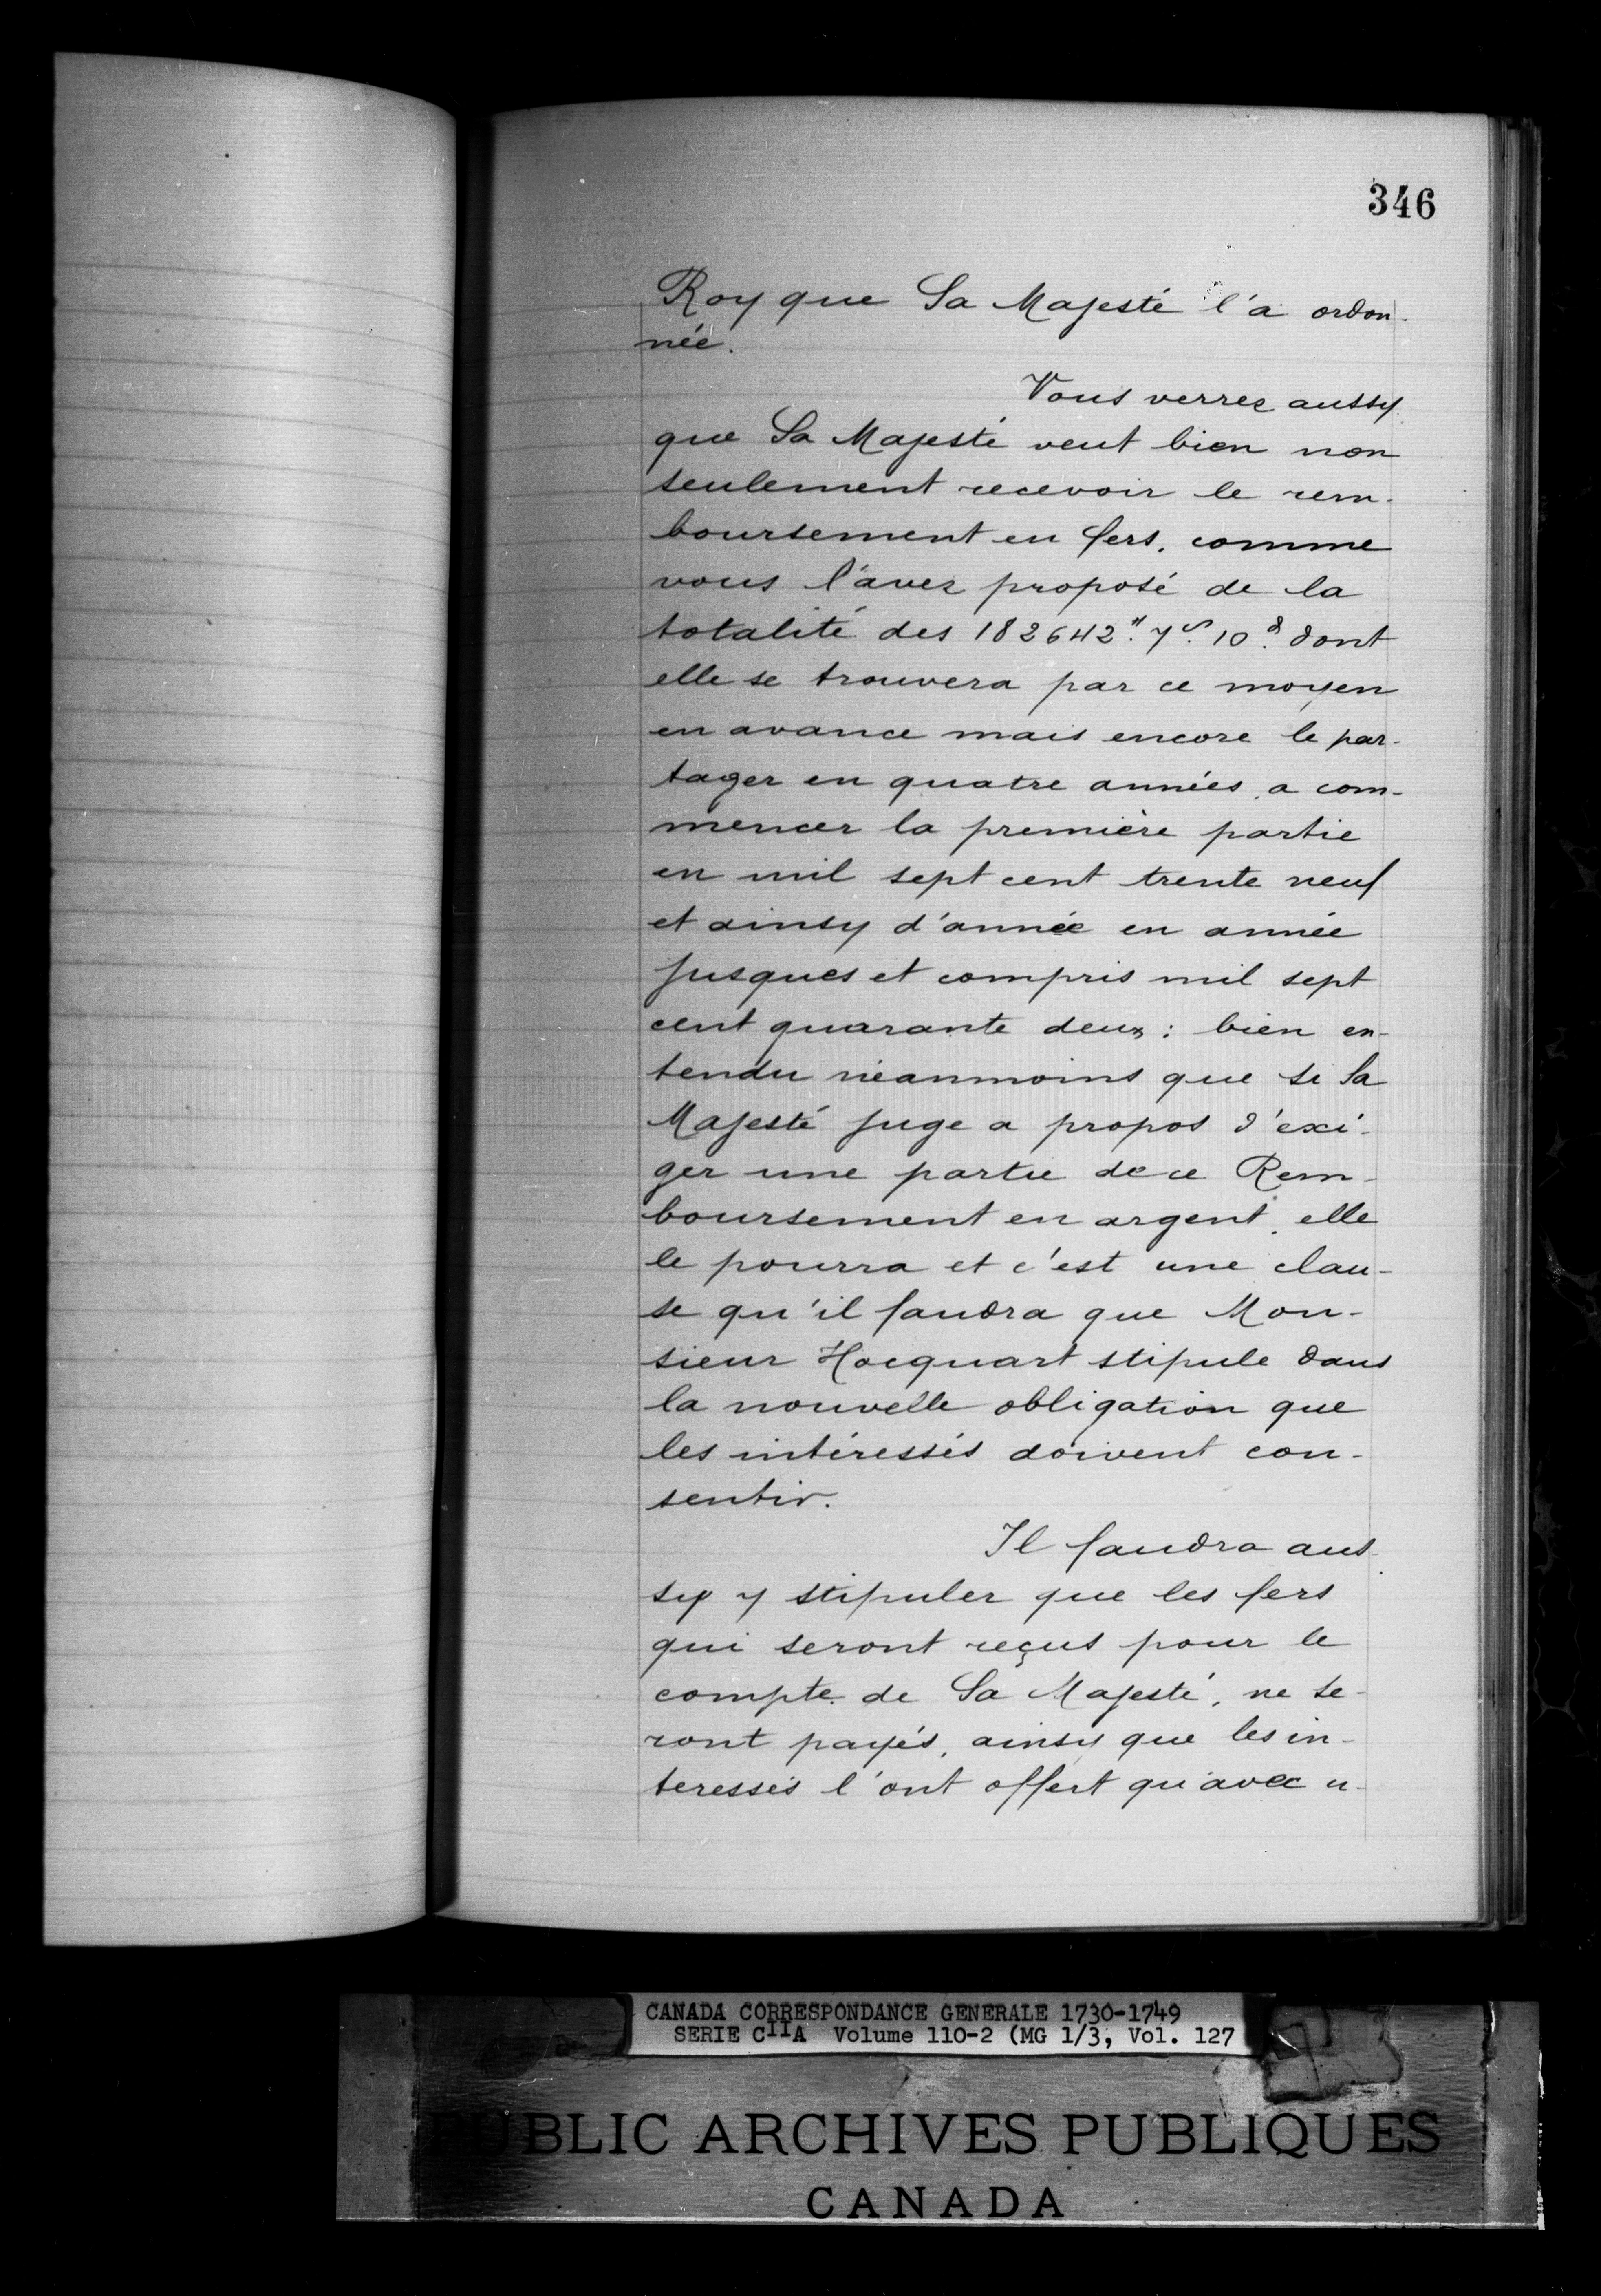 346
Roy que Sa Majesté l'a ordon-
née.
Vous verrez aussy
que Sa Majesté veut bien non
seulement recevoir le rem-
boursement en fers, comme
vous l'avez proposé de la
totalité des 182642# 7s. 10d. dont
elle se trouvera par ce moyen
en avance mais encore le par-
tager en quatre années, a com-
mencer la première partie
en mil sept cent trente neuf
et ainsy d'année en année
jusques et compris mil sept
cent quarante deux : bien en-
tendu néanmoins que si Sa
Majesté juge a propos d'exi-
ger une partie de ce Rem-
boursement en argent, elle
le pourra et c'est une clau-
se qu'il faudra que Mon-
sieur Hocquart stipule dans
la nouvelle obligation que
les intéressés doivent con-
sentir.
Il faudra aus-
sy y stipuler que les fers
qui seront reçus pour le
compte de Sa Majesté, ne se-
ront payés, ainsy que les in-
teressés l'ont offert qu'avec u-
CANADA CORRESPONDANCE GENERALE 1730-1749
SERIE CIIA Volume 110-2 (MG 1/3, Vol. 127
PUBLIC ARCHIVES PUBLIQUES
CANADA